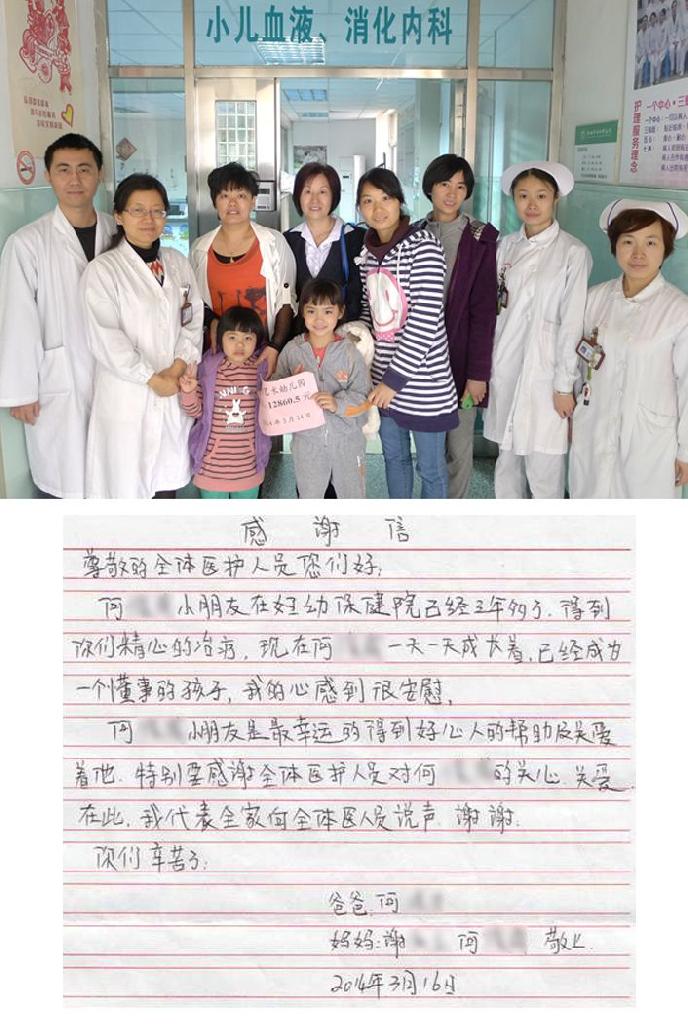 小儿血液、消化内科
护理服务理念
一个中心
幼儿园
12860.5元
年3月14日
感谢信
尊敬的全体医护人员您们好:
阿 小朋友在妇幼保健院已经三年多了,得到
你们精心的治疗,现在阿 一天一天成长着,已经成为
一个懂事的孩子,我的心感到很安慰,
阿 小朋友是最幸运的得到好心人的帮助及关爱
着他.特别要感谢全体医护人员对何 的关心.关爱.
在此,我代表全家向全体医人员说声.谢谢.
你们辛苦了:
爸爸:阿
妈妈:谢 阿 敬上.
2014年3月16日